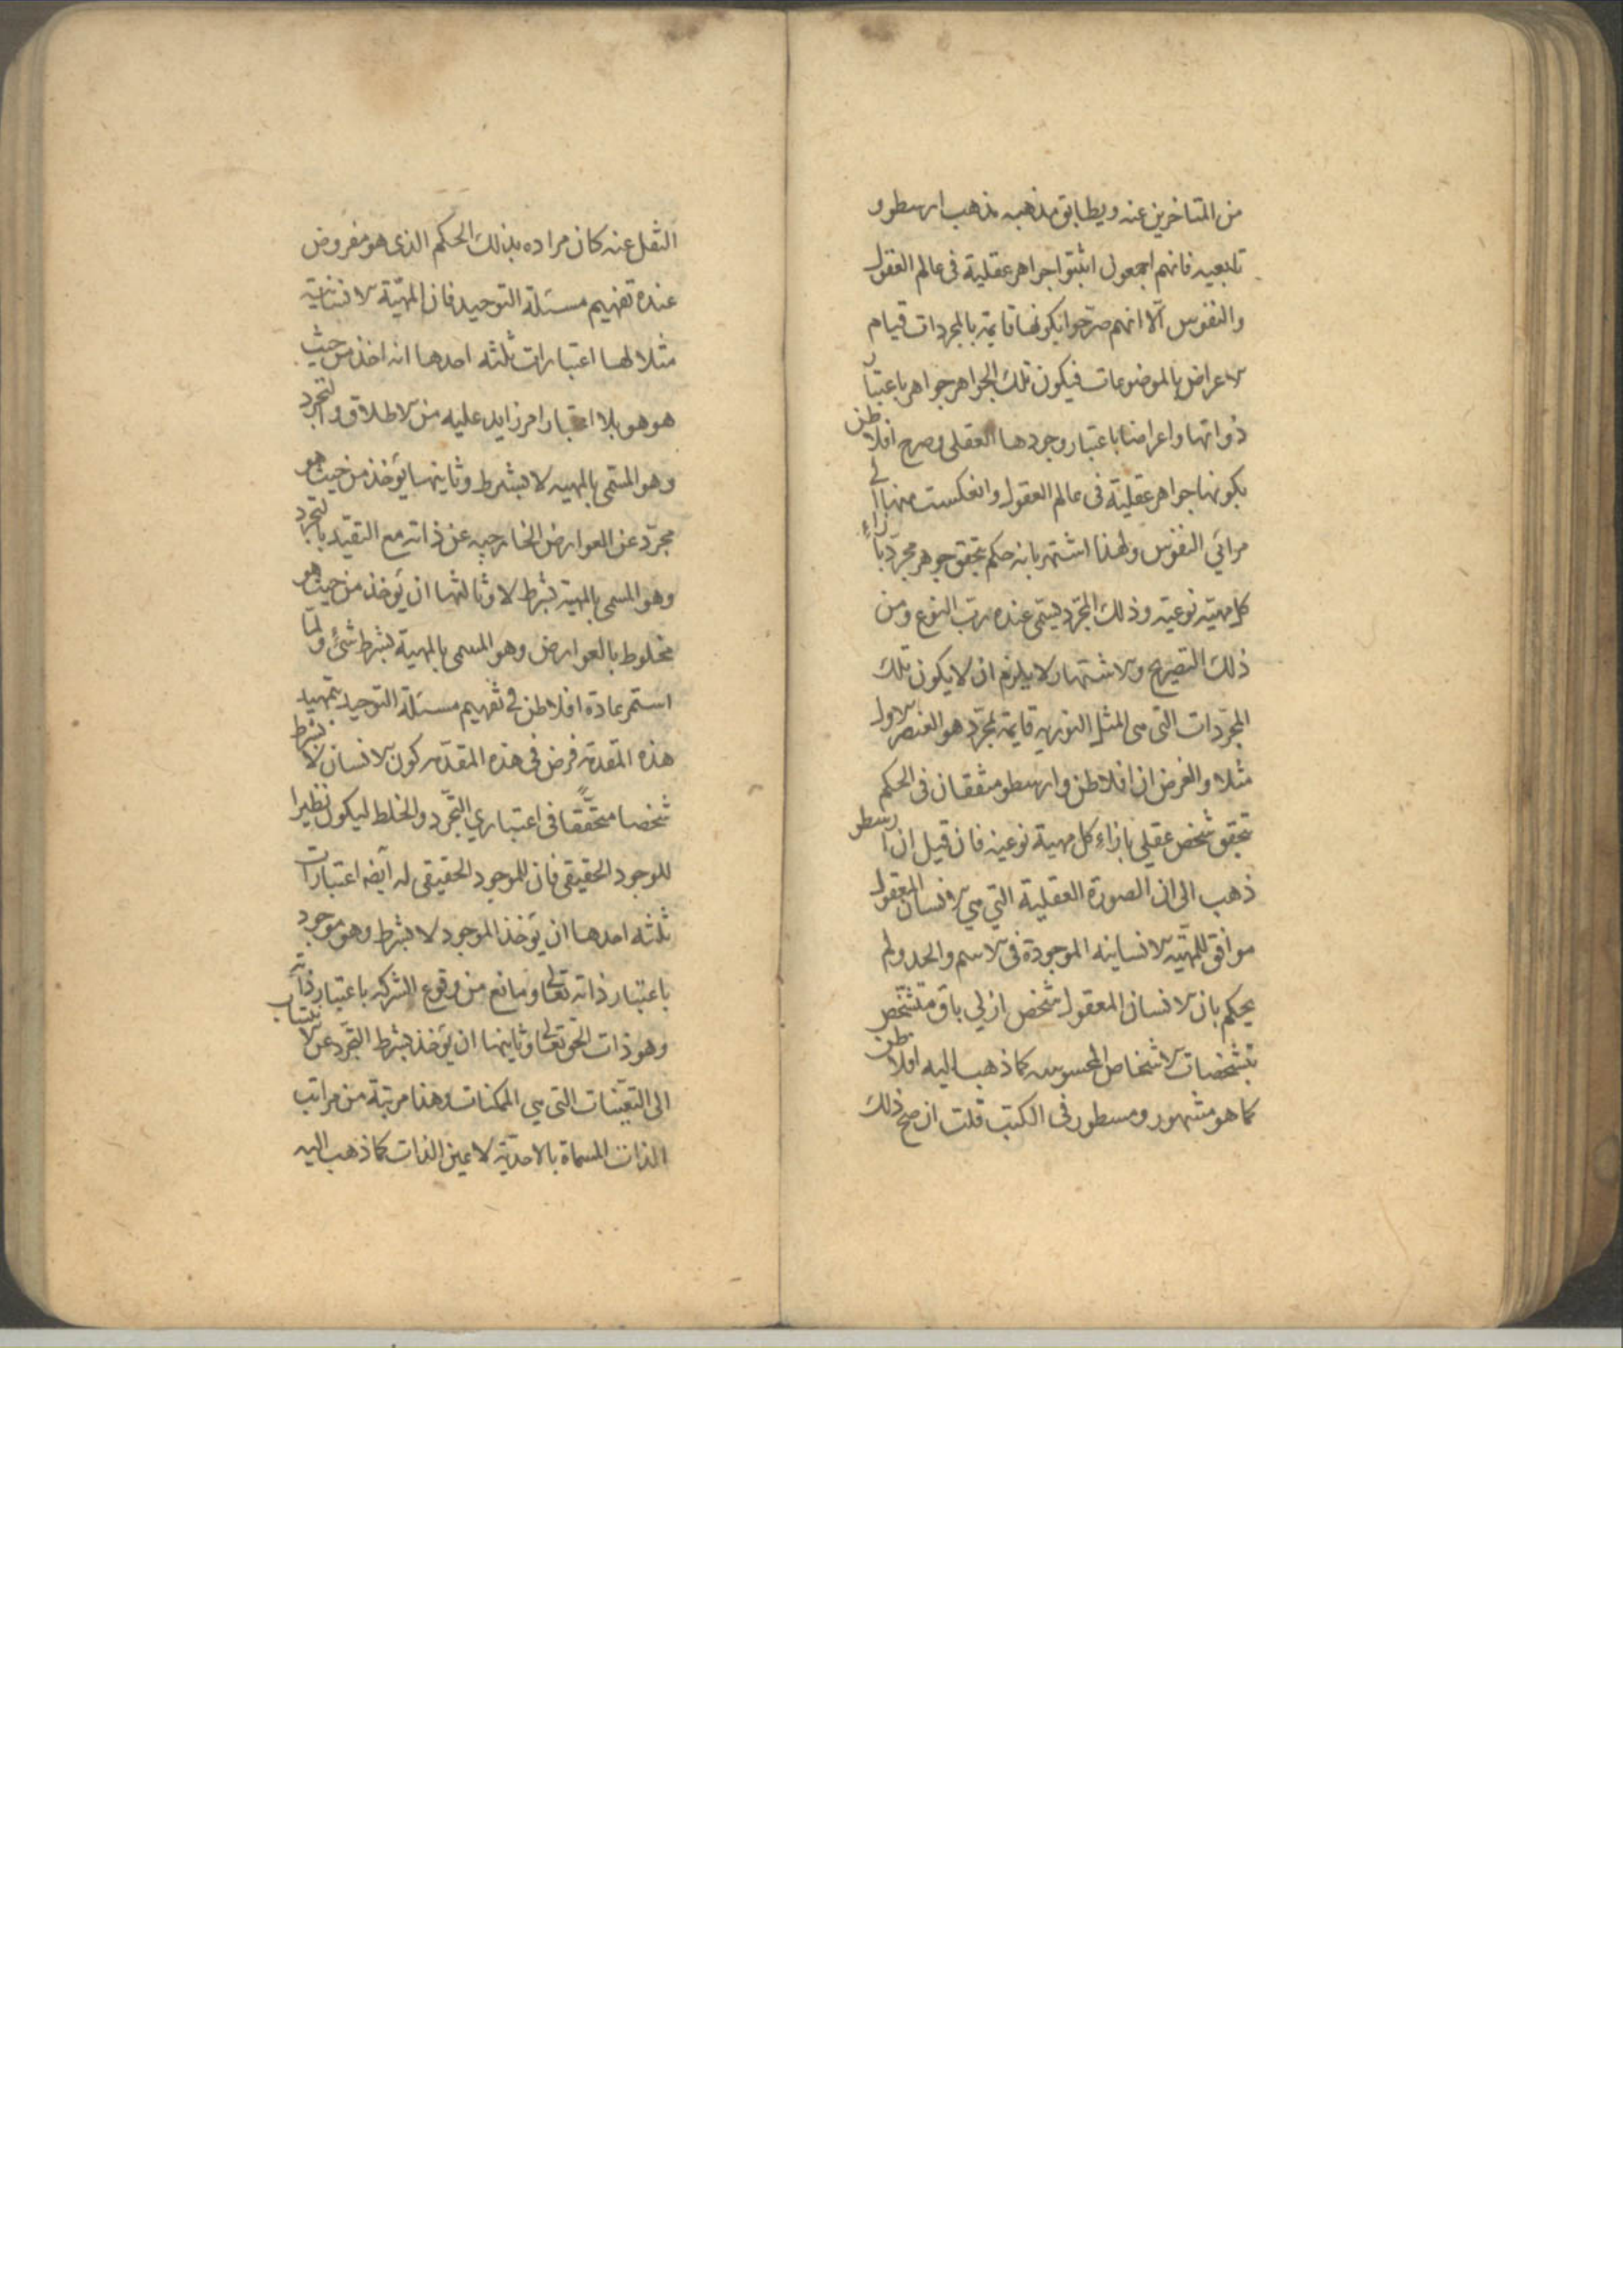 من المتاخرين عنه ويطابق مذهبه مذهب ارسطو و
تابعيه فانهم اجمعون اثبتوا جواهر عقلية في عالم العقول
والنفوس الا انهم صرحوا بكونها قايمة بالمجردات قيام
الاعراض بالموضوعات فيكون تلك الجواهر جواهر باعتبار
ذواتها واعراضا باعتبار وجودها العقلي وصرح افلاطن
بكونها جواهر عقلية في عالم العقول وانعكست منها الي
مرائي النفوس ولهذا اشتهر بانه حكم بتحقق جوهر مجرد بازاء
كل مهية نوعية وذلك المجرد يسمى عنده برب النوع ومن
ذلك التصريح والاشتهار لا يلزم ان لا يكون تلك
المجردات التي هي المثل النورية قايمة بمجرد هو العنصر الاول
مثلا والغرض ان افلاطن وارسطو متفقان في الحكم
بتحقق شخص عقلي بازاء كل مهية نوعية فان قيل ان ارسطو
ذهب الى ان الصورة العقلية التي هي الانسان المعقول
موافق للمهية الانسانية الموجودة في الاسم والحد ولم
يحكم بان الانسان المعقول شخص ازلي باق متشخص
بتشخصات الاشخاص المحسوسه كما ذهب اليه افلاطن
كما هو مشهور ومسطور في الكتب قلت ان صح ذلك
النقل عنه كان مراده بذلك الحكم الذي هو مفروض
عنده تفهيم مسئلة التوحيد فان المهية الانسانية
مثلا لها اعتبارات ثلثه احدها انه اخذ من حيث
هو هو بلا اعتبار امر زايد عليه من الاطلاق والتجرد
وهو المسمى بالمهيه لا بشرط وثانيها يؤخذ من حيث هو
مجرد عن العوارض الخارجيه عن ذاته مع التقيد بالتجرد
وهو المسمى بالمهية بشرط لا وثالثها ان يؤخذ من حيث هو
مخلوط بالعوارض وهو المسمى بالمهية بشرط شئ ولما
استمر عادة افلاطن في تفهيم مسئلة التوحيد بتمهيد
هذه المقدمة فرض في هذه المقدمه كون الانسان لا بشرط
شخصا متحققا في اعتباري التجرد والخلط ليكون نظيرا
للوجود الحقيقي فان للموجود الحقيقي له ايضه اعتبارات
ثلثه احدها ان يؤخذ الموجود لا بشرط وهو موجود
باعتبار ذاته تعالى ومانع من وقوع الشركه باعتبار ذاته
وهو ذات الحق تعالى وثانيها ان يؤخذ بشرط التجرد عن الانتساب
الى التعينات التي هي الممكنات وهذا مرتبة من مراتب
الذات المسماة بالاحدية لا عين الذات كما ذهب اليه